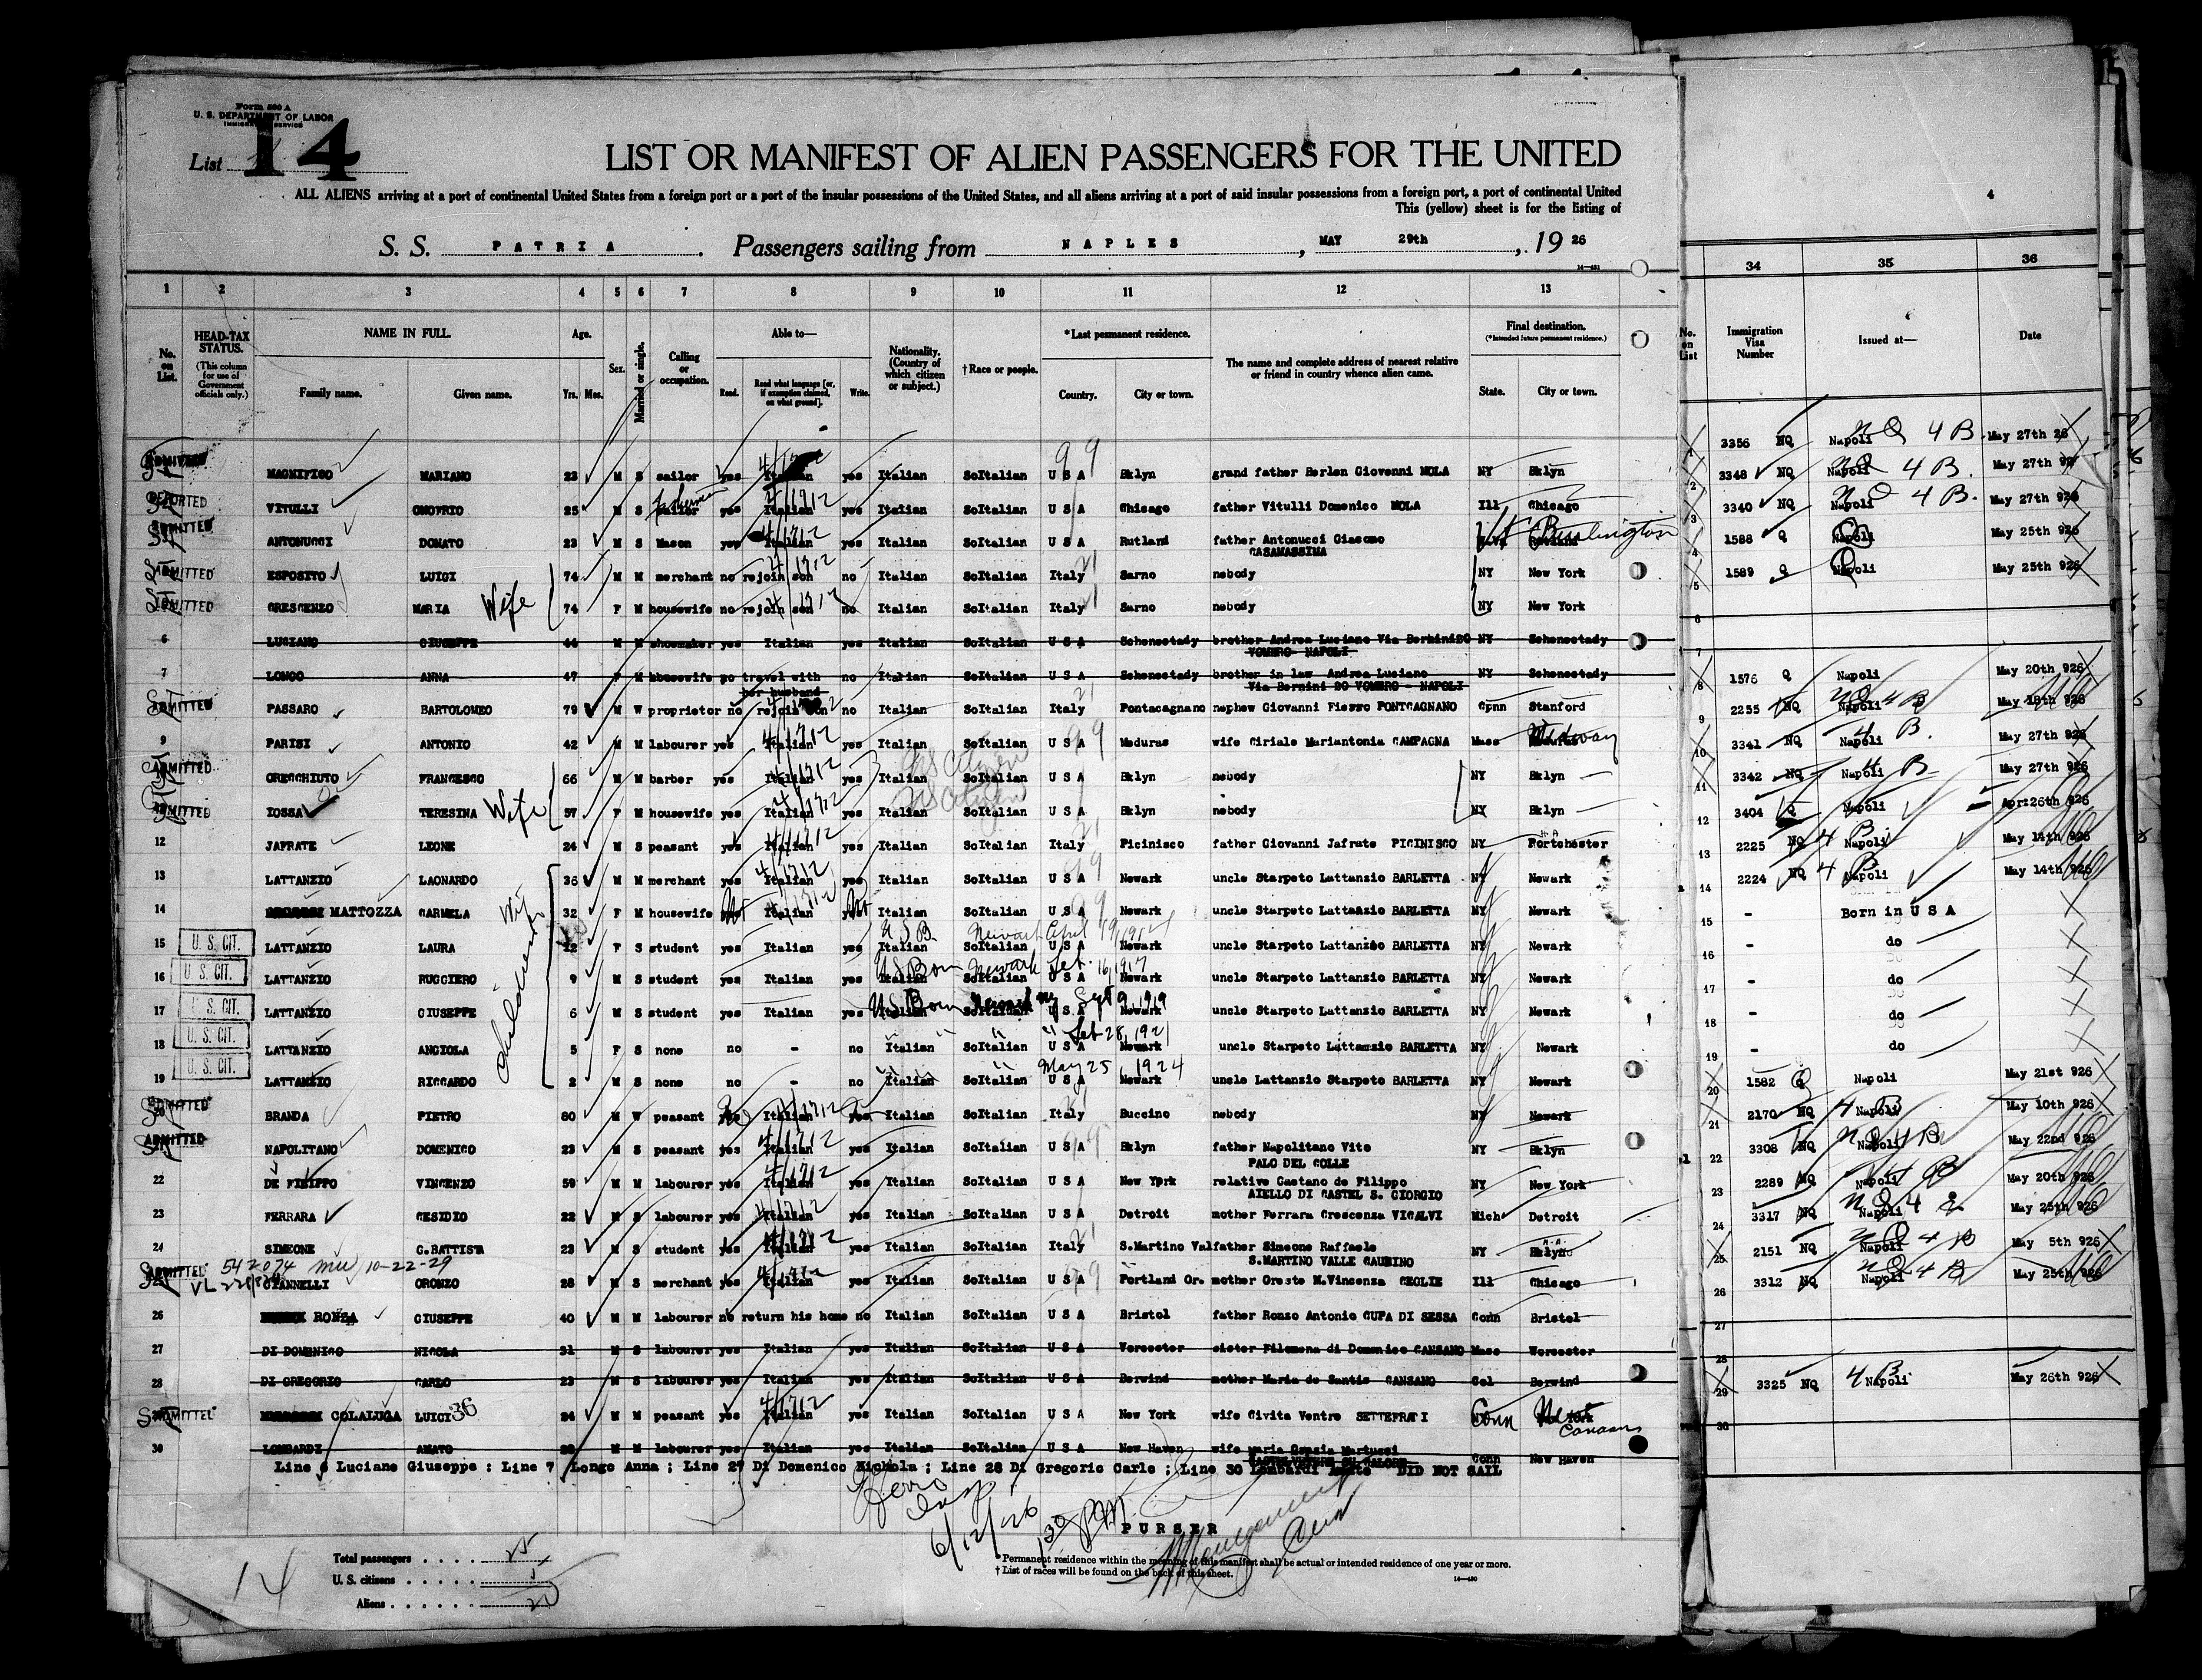 Form 500 A
U. S. DEPARTMENT OF LABOR
IMMIGRATION SERVICE
List 14
LIST OR MANIFEST OF ALIEN PASSENGERS FOR THE UNITED
ALL ALIENS arriving at a port of continental United States from a foreign port or a port of the insular possessions of the United States, and all aliens arriving at a port of said insular possessions from a foreign port, a port of continental United
This (yellow) sheet is for the listing of
S. S. PATRIA. Passengers sailing from NAPLES, MAY 29th, 19 26
1 2 3 4 5 6 7 8 9 10 11 12 13
No. on List.
HEAD-TAX STATUS.
(This column for use of Government officials only.)
NAME IN FULL.
Family name. Given name.
Age.
Yrs. Mos.
Sex.
Married or single.
Calling or occupation.
Able to—
Read. Read what language [or, if exemption claimed, on what ground]. Write.
Nationality. (Country of which citizen or subject.)
†Race or people.
*Last permanent residence.
Country. City or town.
The name and complete address of nearest relative or friend in country whence alien came.
Final destination.
(*Intended future permanent residence.)
State. City or town.
ADMITTED MAGNIFICO MARIANO 23 M S sailor yes Italian yes Italian SoItalian U S A Bklyn grand father Berlen Giovenni MOLA NY Bklyn
DEPORTED VITULLI ONOFRIO 25 M S yes Italian yes Italian SoItalian U S A Chicago father Vitulli Domenico MOLA Ill Chicago
ADMITTED ANTONUCCI DONATO 23 M S Mason yes Italian yes Italian SoItalian U S A Rutland father Antonucci Giacomo CASAMASSIMA Vt Burlington
ADMITTED ESPOSITO LUIGI 74 M M merchant no rejoin son no Italian SoItalian Italy Sarno nobody NY New York
ADMITTED CRESCENZO MARIA Wife 74 F M housewife no rejoin son no Italian SoItalian Italy Sarno nobody NY New York
6 LUCIANO GIUSEPPE 44 M M shoemaker yes Italian yes Italian SoItalian U S A Schenectady brother Andrea Luciano Via Bernini 20 VOMERO- NAPOLI NY Schenectady
7 LONGO ANNA 47 F M housewife no travel with her husband no Italian SoItalian U S A Schenectady brother in law Andrea Luciano Via Bernini 20 VOMERO - NAPOLI NY Schenectady
ADMITTED PASSARO BARTOLOMEO 79 M W proprietor no rejoin son no Italian SoItalian Italy Pontacagnano nephew Giovanni Fiesso PONTCAGNANO Conn Stanford
9 PARISI ANTONIO 42 M M labourer yes Italian yes Italian SoItalian U S A Maduras wife Ciriale Mariantonia CAMPAGNA Mass
ADMITTED ORECCHIUTO FRANCESCO 66 M M barber yes Italian yes US Citizen SoItalian U S A Bklyn nobody NY Bklyn
ADMITTED IOSSA TERESINA Wife 57 F M housewife yes Italian yes US Citizen SoItalian U S A Bklyn nobody NY Bklyn
12 JAFRATE LEONE 24 M S peasant yes Italian yes Italian SoItalian Italy Picinisco father Giovanni Jafrate PICINISCO NY Portchester
13 LATTANZIO LAONARDO 36 M M merchant yes Italian yes Italian SoItalian U S A Newark uncle Starpeto Lattanzio BARLETTA NY Newark
14 MATTOZZA CARMELA 32 F M housewife Italian Italian SoItalian U S A Newark uncle Starpeto Lattanzio BARLETTA NY Newark
15 U. S. CIT. LATTANZIO LAURA 12 F S student yes Italian yes Italian SoItalian U S A Newark uncle Starpeto Lattanzio BARLETTA NY Newark
16 U. S. CIT. LATTANZIO RUGGIERO 9 M S student yes Italian yes US Born Newark SoItalian U S A Newark uncle Starpeto Lattanzio BARLETTA NY Newark
17 U. S. CIT. LATTANZIO GIUSEPPE 6 M S student yes Italian yes US Born Sept 9, 1919 SoItalian U S A Newark uncle Starpeto Lattanzio BARLETTA NY Newark
18 U. S. CIT. LATTANZIO ANGIOLA 5 F S none no - no Italian SoItalian U S A Feb 28, 1921 Newark uncle Starpeto Lattanzio BARLETTA NY Newark
19 U. S. CIT. LATTANZIO RICCARDO 2 M S none no - no Italian SoItalian U S A May 25, 1924 Newark uncle Lattanzio Starpeto BARLETTA NY Newark
children
ADMITTED 20 BRANDA PIETRO 80 M W peasant Italian Italian SoItalian Italy Buccino nobody NY Newark
ADMITTED NAPOLITANO DOMENICO 23 M S peasant yes Italian yes Italian SoItalian U S A Bklyn father Napolitano Vito PALO DEL COLLE NY Bklyn
22 DE FILIPPO VINCENZO 59 M M labourer yes Italian yes Italian SoItalian U S A New York relative Gaetano de Filippo AIELLO DI CASTEL S. GIORGIO NY New York
23 FERRARA CESIDIO 22 M S labourer yes Italian yes Italian SoItalian U S A Detroit mother Ferrara Crescenza VICALVI Mich Detroit
24 SIMEONE G.BATTISTA 23 M S student yes Italian yes Italian SoItalian Italy S.Martino Val father Simeone Raffaele S.MARTINO VALLE CAUDINO NY Bklyn
542074 10-22-29
ADMITTED GIANNELLI ORONZO 28 M S merchant yes Italian yes Italian SoItalian U S A Portland Or. mother Oreste M.Vincenza CEGLIE Ill Chicago
26 RONZA GIUSEPPE 40 M M labourer no return his home no Italian SoItalian U S A Bristol father Ronzo Antonio CUPA DI SESSA Conn Bristol
27 DI DOMENICO NICOLA 31 M S labourer yes Italian yes Italian SoItalian U S A Worcester sister Filomena di Domenico CANSANO Mass Worcester
28 DI GREGORIO CARLO 23 M S labourer yes Italian yes Italian SoItalian U S A Berwind mother Maria de Santis CANSANO Col Berwind
ADMITTED COLALUCA LUIGI 36 M M peasant yes Italian yes Italian SoItalian U S A New York wife Civita Ventre SETTEFRATI Conn New Canaan
30 LOMBARDI AMATO M M labourer yes Italian yes Italian SoItalian U S A New Haven wife Maria Grazia Martucci Conn New Haven
Line 6 Luciano Giuseppe ; Line 7 Longo Anna ; Line 27 Di Domenico Nichola ; Line 28 Di Gregorio Carlo ; Line 30 Lombardi Amato DID NOT SAIL
6/12/26
130 PM
PURSER
Total passengers 25
U. S. citizens 5
Aliens 20
14
* Permanent residence within the meaning of this manifest shall be actual or intended residence of one year or more.
† List of races will be found on the back of this sheet.
4
34 35 36
No. on List
Immigration Visa Number
Issued at—
Date
1 3356 NQ Napoli NQ 4 B May 27th 26
2 3348 NQ Napoli 4 B. May 27th 926
3 3340 NQ Napoli NQ 4 B. May 27th 926
4 1588 Q Napoli Q May 25th 926
5 1589 Q Napoli Q May 25th 926
6
7
8 1576 Q Napoli May 20th 926
9 2255 NQ Napoli NQ 4 B May 18th 926
10 3341 NQ Napoli 4 B. May 27th 926
11 3342 NQ Napoli 4 B May 27th 926
12 3404 Q Napoli Apr:26th 926
13 2225 NQ 4 B Napoli May 14th 926
14 2224 NQ 4 B Napoli May 14th 926
15 - Born in U S A
16 - do
17 - do
18 - do
19 - do
20 1582 Q Napoli May 21st 926
21 2170 NQ 4 B Napoli May 10th 926
22 3308 NQ Napoli NQ 4 B May 22nd 926
23 2289 NQ Napoli 4 B May 20th 926
24 3317 NQ Napoli NQ 4 May 25th 926
25 2151 NQ Napoli NQ 4 B May 5th 926
26 3312 NQ Napoli NQ 4 B May 25th 926
27
28
29 3325 NQ 4 B. Napoli May 26th 926
30